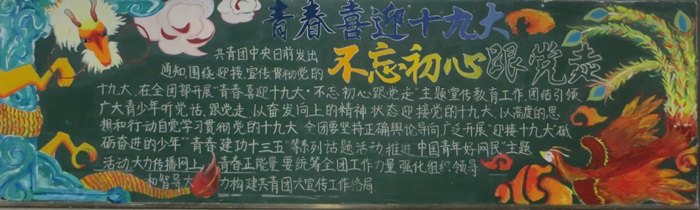 青春喜迎十九大
不忘初心跟党走
共青团中央日前发出
通知围绕迎接宣传贯彻党的
十九大,在全团部开展“青春喜迎十九大·不忘初心跟党走”主题宣传教育工作,团结引领
广大青少年听党话、跟党走,以奋发向上的精神状态迎接党的十九大,以高度的思
想和行动自觉学习贯彻党的十九大 全团要坚持正确舆论导向,广泛开展“迎接十九大 砥
砺奋进的少年”“青春建功十三五”等系列话题活动,推进“中国青年好网民”主题
活动,大力传播网上 青春正能量,要统筹全团工作力量 强化组织领导
和督导 大 力构建共青团大宣传工作格局